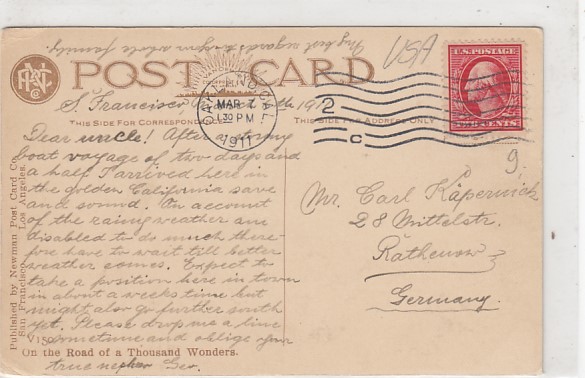 My best regards to your whole family
USA
POST CARD
U.S. POSTAGE
S. Francisco 6th 1911
OAKLAND CAL.
MAR 7
1 30 PM
1911
2
C
THIS SIDE FOR CORRESPONDENCE
THIS SIDE FOR ADDRESS ONLY
CENTS
Dear uncle! After a stormy
boat voyage of two days and
a half I arrived here in
the golden California save
and sound. On account
of the rainy weather am
disabled to do much there-
fore have to wait till better
weather comes. Expect to
take a position here in town
in about a weeks time but
might also go further south
yet. Please drop me a line
sometime and oblige your
true nephew Geo.
9.
Mr. Carl Käpernick
28 Mittelstr.
Rathenow
Germany.
Published by Newman Post Card Co.
San Francisco Los Angeles.
V150
On the Road of a Thousand Wonders.